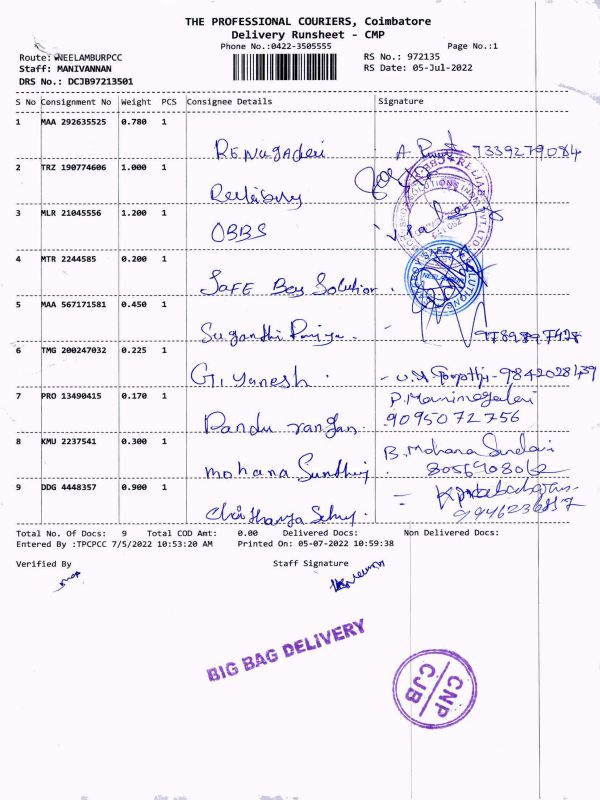 THE PROFESSIONAL COURIERS, Coimbatore
Delivery Runsheet - CMP
Phone No.:0422-3505555
Page No.:1
Route: NEELAMBURPCC
RS No.: 972135
Staff: MANIVANNAN
RS Date: 05-Jul-2022
DRS No.: DCJB97213501
S No Consignment No Weight PCS Consignee Details Signature
1 MAA 292635525 0.780 1
Renugadevi A 7339279084
2 TRZ 190774606 1.000 1
3 MLR 21045556 1.200 1
OBBS
4 MTR 2244585 0.200 1
SAFE Boy Solution
5 MAA 567171581 0.450 1
Sugandhi 9789897428
6 TMG 200247032 0.225 1
G. Yanesh. 9842028439
7 PRO 13490415 0.170 1
Pandu rangan. 9095072756
8 KMU 2237541 0.300 1
B. Mohana
mohana 8056908062
9 DDG 4448357 0.900 1
Total No. Of Docs: 9 Total COD Amt: 0.00 Delivered Docs: Non Delivered Docs:
Entered By :TPCPCC 7/5/2022 10:53:20 AM Printed On: 05-07-2022 10:59:38
Verified By Staff Signature
BIG BAG DELIVERY
CNP
CJB